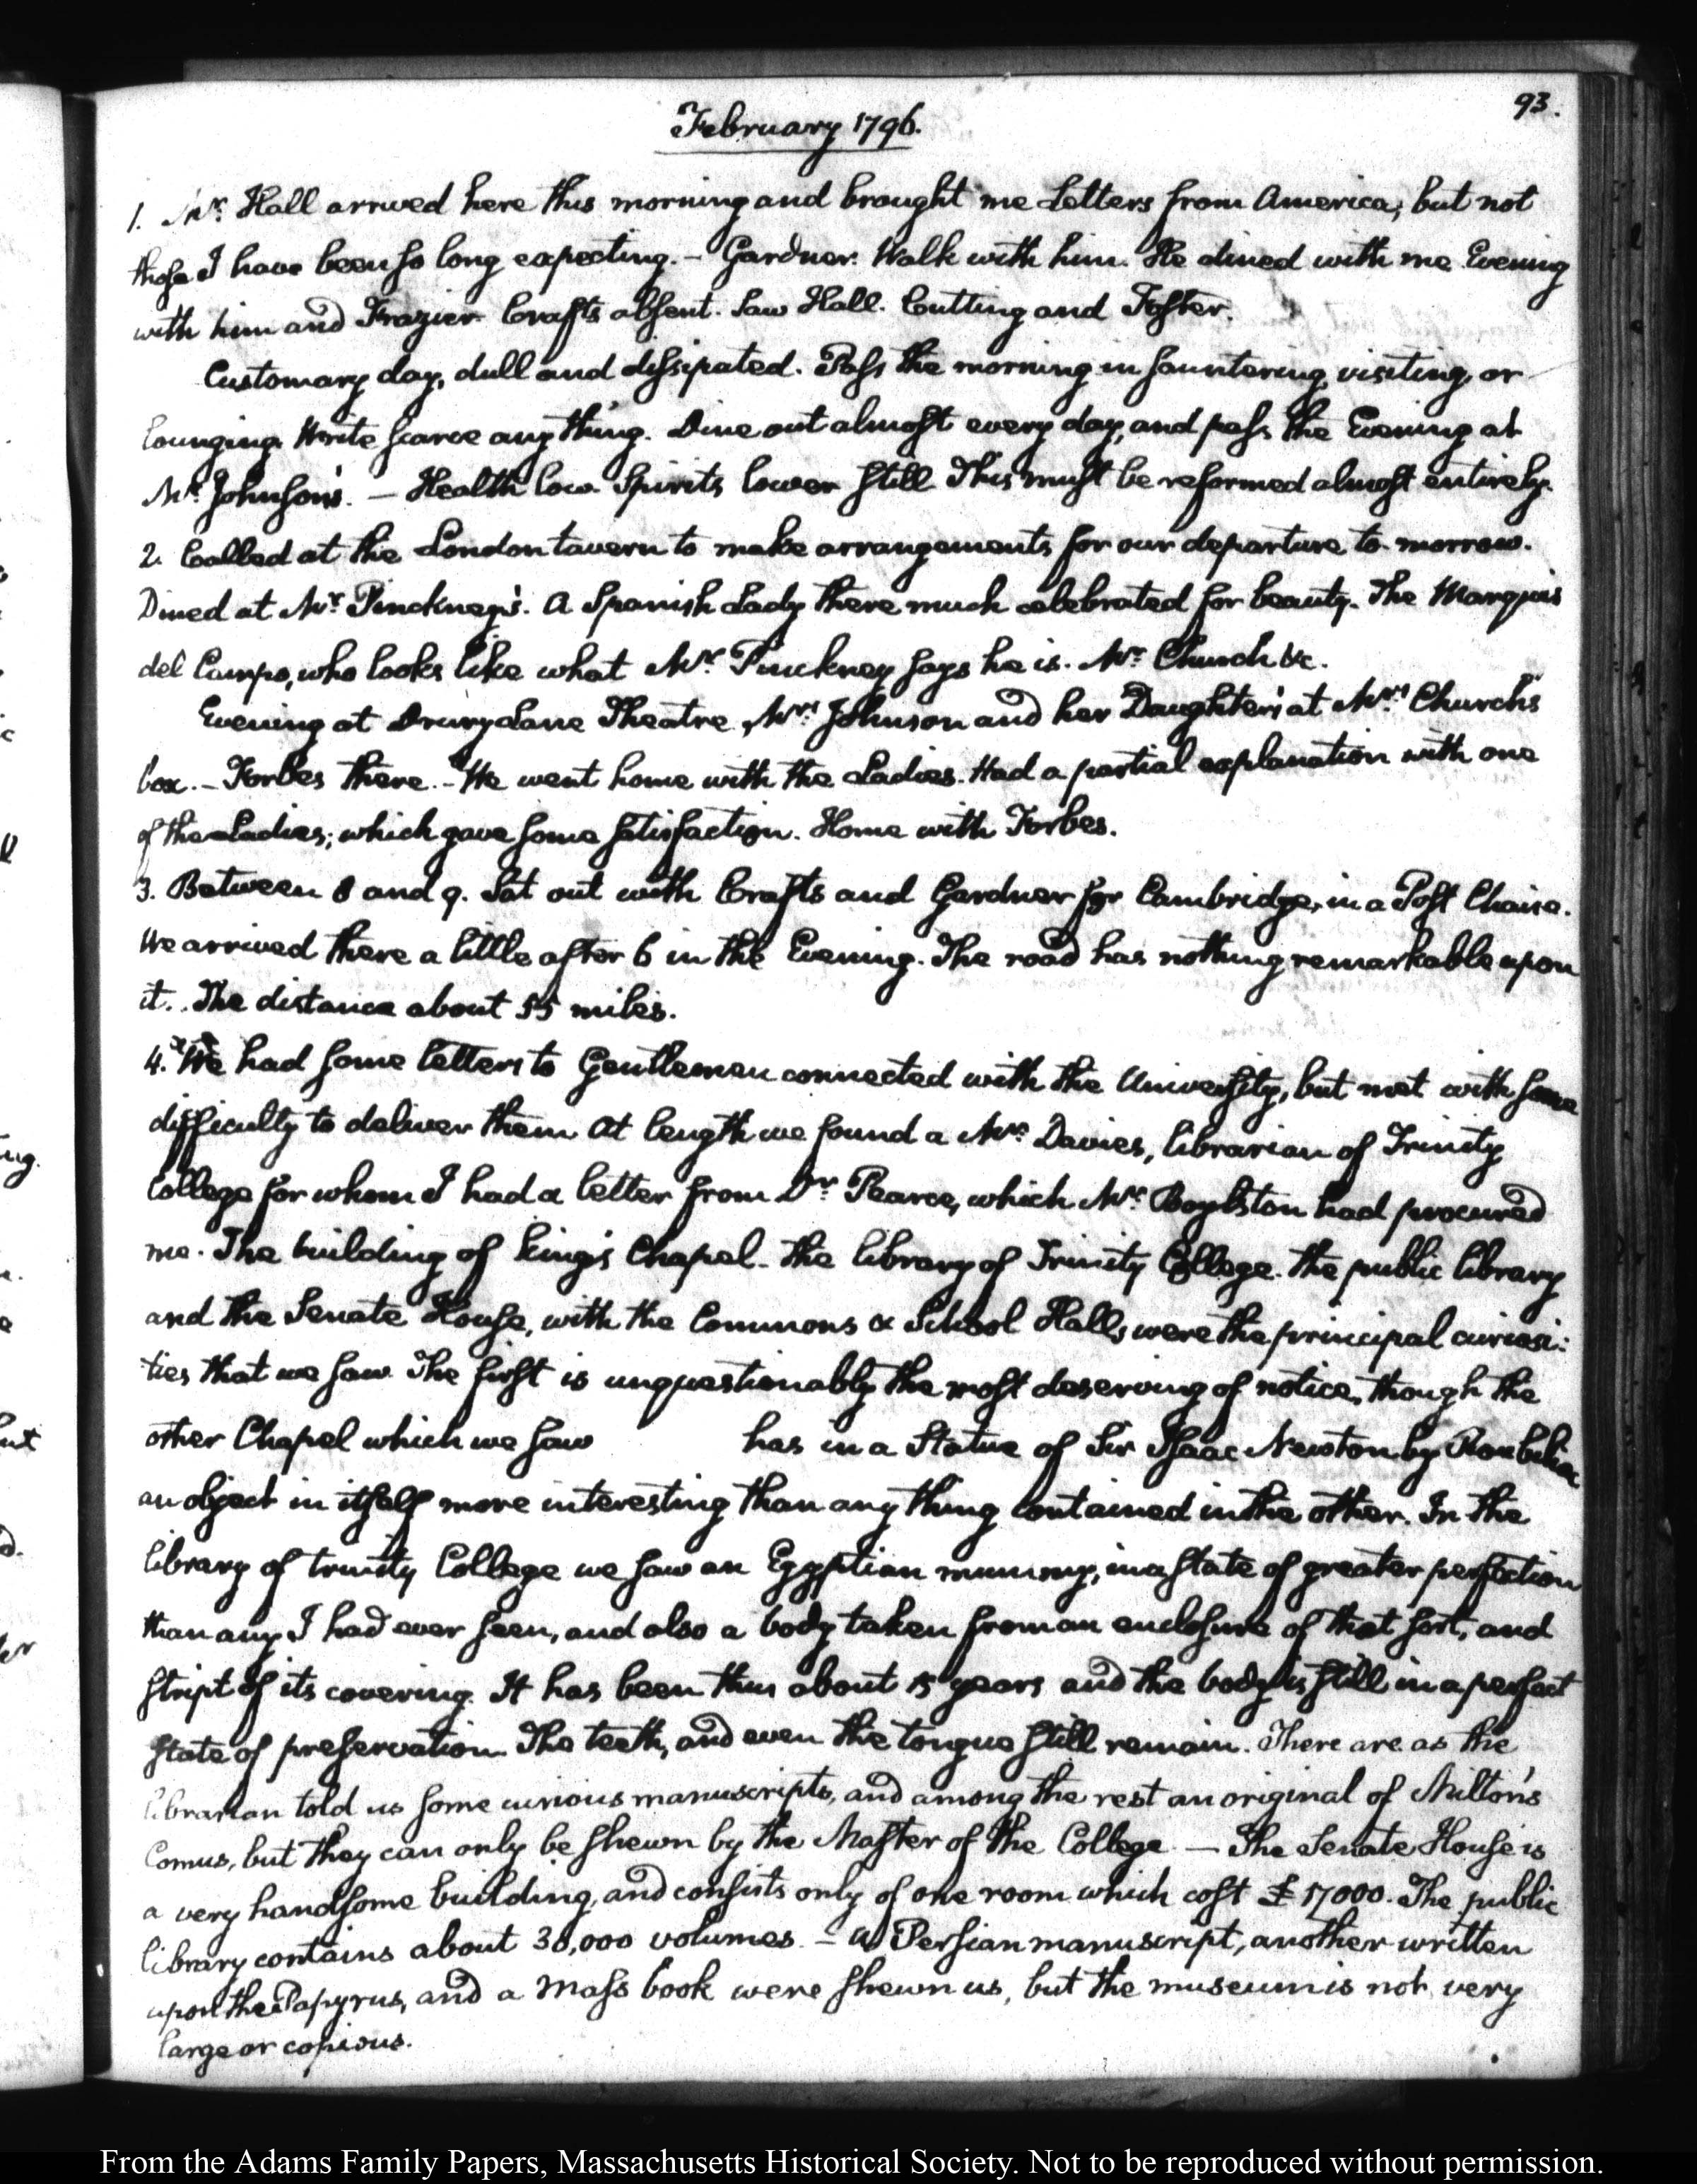 93.
February 1796.
1. Mr. Hall arrived here this morning and brought me Letters from America, but not
those I have been so long expecting. — Gardner. Walk with him. He dined with me Evening
with him and Frazier. Crafts absent. Saw Hall. Cutting and Foster.
Customary day, dull and dissipated. Pass the morning in sauntering, visiting, or
lounging. Write scarce any thing. Dine out almost every day, and pass the Evening at
Mr. Johnson's. — Health low. Spirits lower still. This must be reformed almost entirely.
2. Called at the London tavern to make arrangements for our departure to-morrow.
Dined at Mr. Pinckney's. A Spanish Lady there much celebrated for beauty. The Marquis
del Campo, who looks like what Mr. Pinckney says he is. Mr. Church &c.
Evening at Drury Lane Theatre, Mrs. Johnson and her Daughters at Mrs. Church's
box. — Forbes there. — We went home with the Ladies. Had a partial explanation with one
of the Ladies; which gave some satisfaction. Home with Forbes.
3. Between 8 and 9. Sat out with Crafts and Gardner for Cambridge, in a Post Chaise.
We arrived there a little after 6 in the Evening. The road has nothing remarkable upon
it. The distance about 55 miles.
4. We had some letters to Gentlemen connected with the University, but met with some
difficulty to deliver them. At length we found a Mr. Davies, librarian of Trinity
College for whom I had a letter from Dr. Pearce, which Mr. Boylston had procured
me. The building of King's Chapel. the library of Trinity College. the public library
and the Senate House, with the Commons & School Halls, were the principal curiosi:
ties that we saw. The first is unquestionably the most deserving of notice, though the
other Chapel which we saw has in a Statue of Sir Isaac Newton by Roubiliac
an object in itself more interesting than any thing contained in the other. In the
library of trinity College we saw an Egyptian mummy, in a state of greater perfection
than any I had ever seen, and also a body taken from an enclosure of that sort, and
stript of its covering. It has been thus about 15 years and the body is still in a perfect
state of preservation. The teeth, and even the tongue still remain. There are as the
librarian told us some curious manuscripts, and among the rest an original of Milton's
Comus, but they can only be shewn by the Master of the College. — The Senate House is
a very handsome building, and consists only of one room which cost £17000. The public
library contains about 30,000 volumes. — A Persian manuscript, another written
upon the Papyrus, and a Mass book were shewn us, but the museum is not very
large or copious.
From the Adams Family Papers, Massachusetts Historical Society. Not to be reproduced without permission.